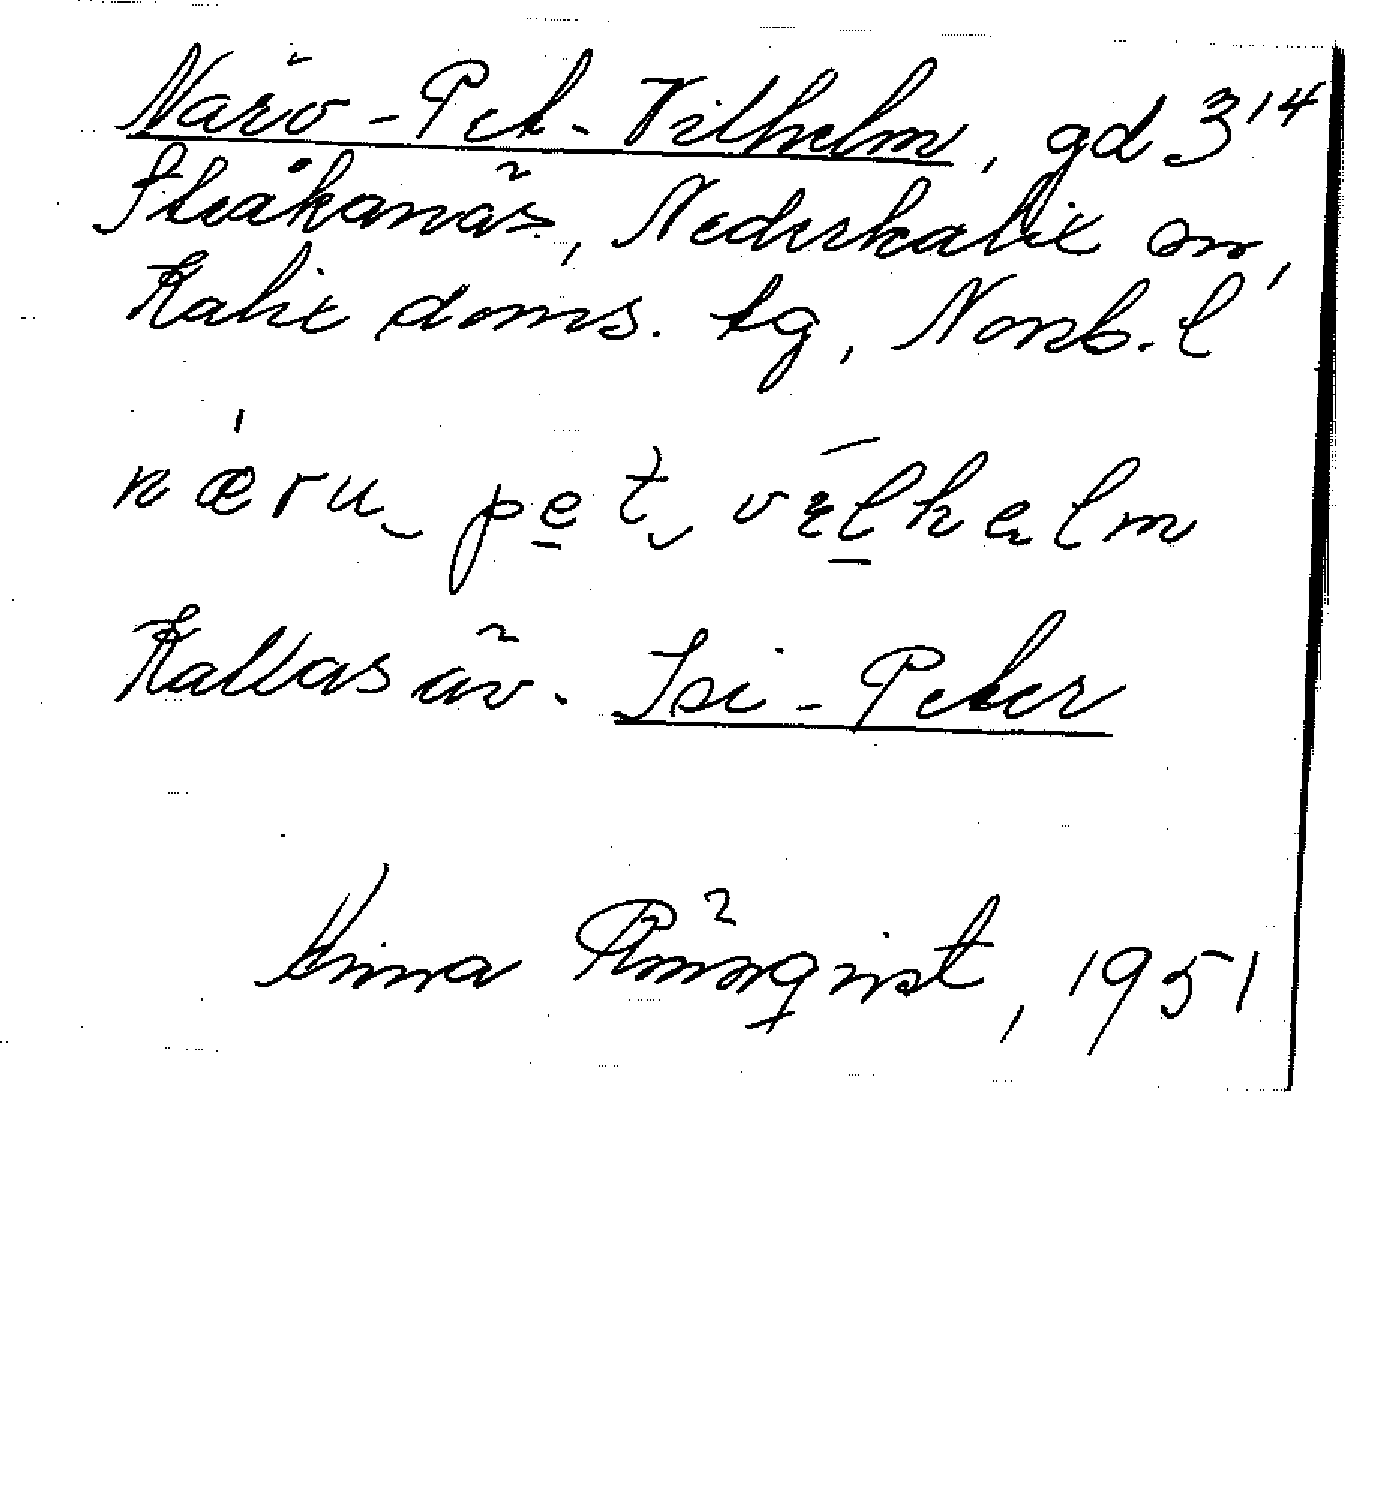 Närö-Pet-Vilhelm, gd 3¹⁴
Storåkanäs, Nederkalix sn,
Kalix doms. tg, Norrb. l
næru pet vilhelm
Kallas äv. Isi-Peter
Rönnqvist, 1951